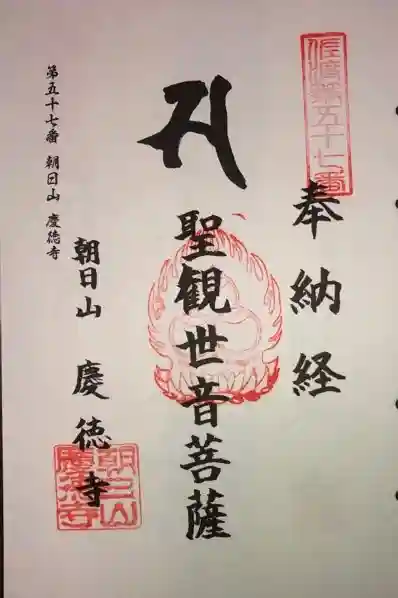 佐渡第五十七番
奉納経
聖観世音菩薩
朝日山 慶徳寺
第五十七番 朝日山 慶徳寺
朝日山
慶徳寺